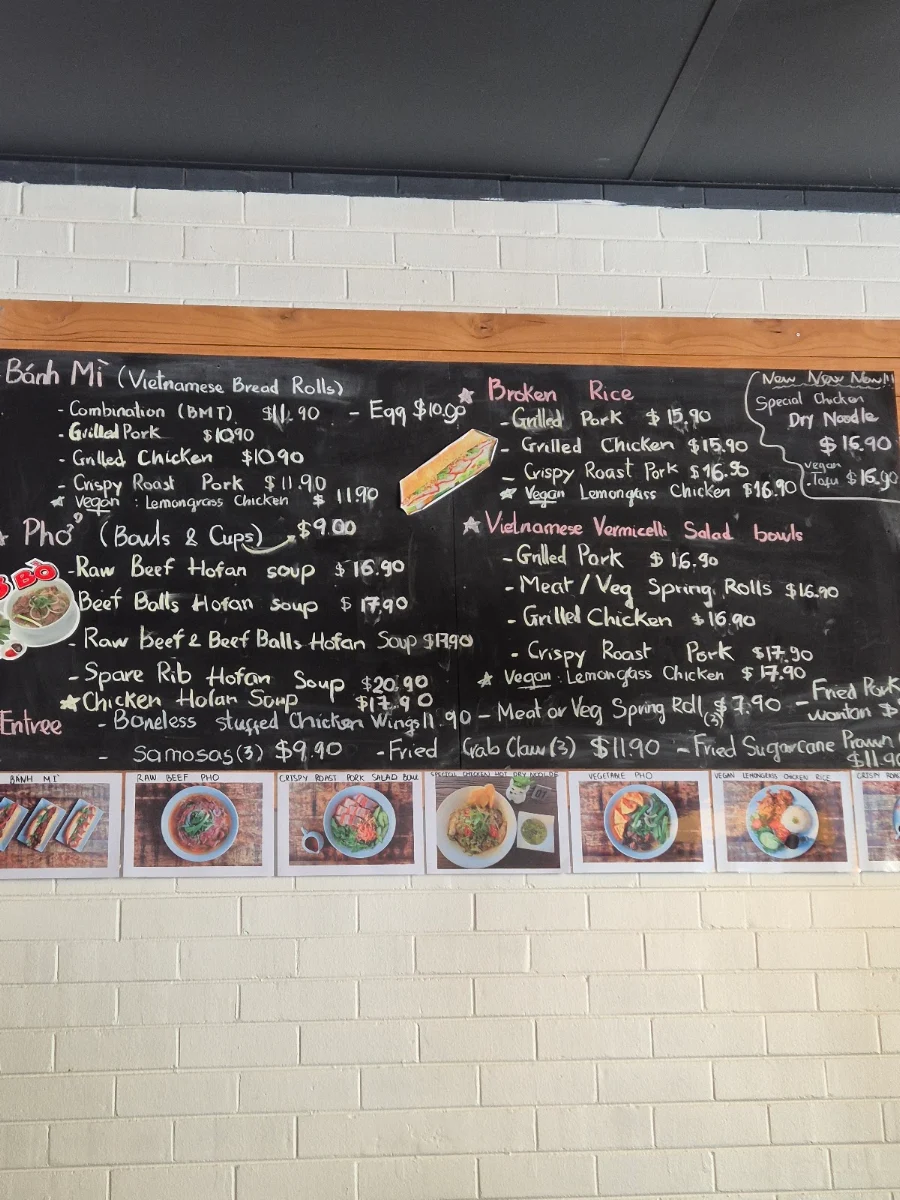 Bánh Mì (Vietnamese Bread Rolls)
- Combination (BMT) $11.90 - Egg $10.90
- Grilled Pork $10.90
- Grilled Chicken $10.90
- Crispy Roast Pork $11.90
★ Vegan : Lemongrass Chicken $11.90
Phở (Bowls & Cups) $9.00
BÒ
- Raw Beef Hofan soup $16.90
Beef Balls Hofan soup $17.90
- Raw beef & Beef Balls Hofan Soup $17.90
- Spare Rib Hofan Soup $20.90
★ Chicken Hofan Soup $17.90
★ Broken Rice
- Grilled Pork $15.90
- Grilled Chicken $15.90
- Crispy Roast Pork $16.90
★ Vegan Lemongrass Chicken $16.90
New New New!!!
Special Chicken
Dry Noodle
$16.90
vegan
- Tofu $16.90
★ Vietnamese Vermicelli Salad bowls
- Grilled Pork $16.90
- Meat / Veg Spring Rolls $16.90
- Grilled Chicken $16.90
- Crispy Roast Pork $17.90
★ Vegan : Lemongrass Chicken $17.90
Entree - Boneless stuffed Chicken Wings 11.90 - Meat or Veg Spring Roll (3) $7.90 - Fried Pork wonton $
- Samosas (3) $9.90 - Fried Crab Claw (3) $11.90 - Fried Sugarcane Prawn $11.90
BÁNH MÌ
RAW BEEF PHO
CRISPY ROAST PORK SALAD BOWL
SPECIAL CHICKEN HOT DRY NOODLE
VEGETABLE PHO
VEGAN LEMONGRASS CHICKEN RICE
CRISPY